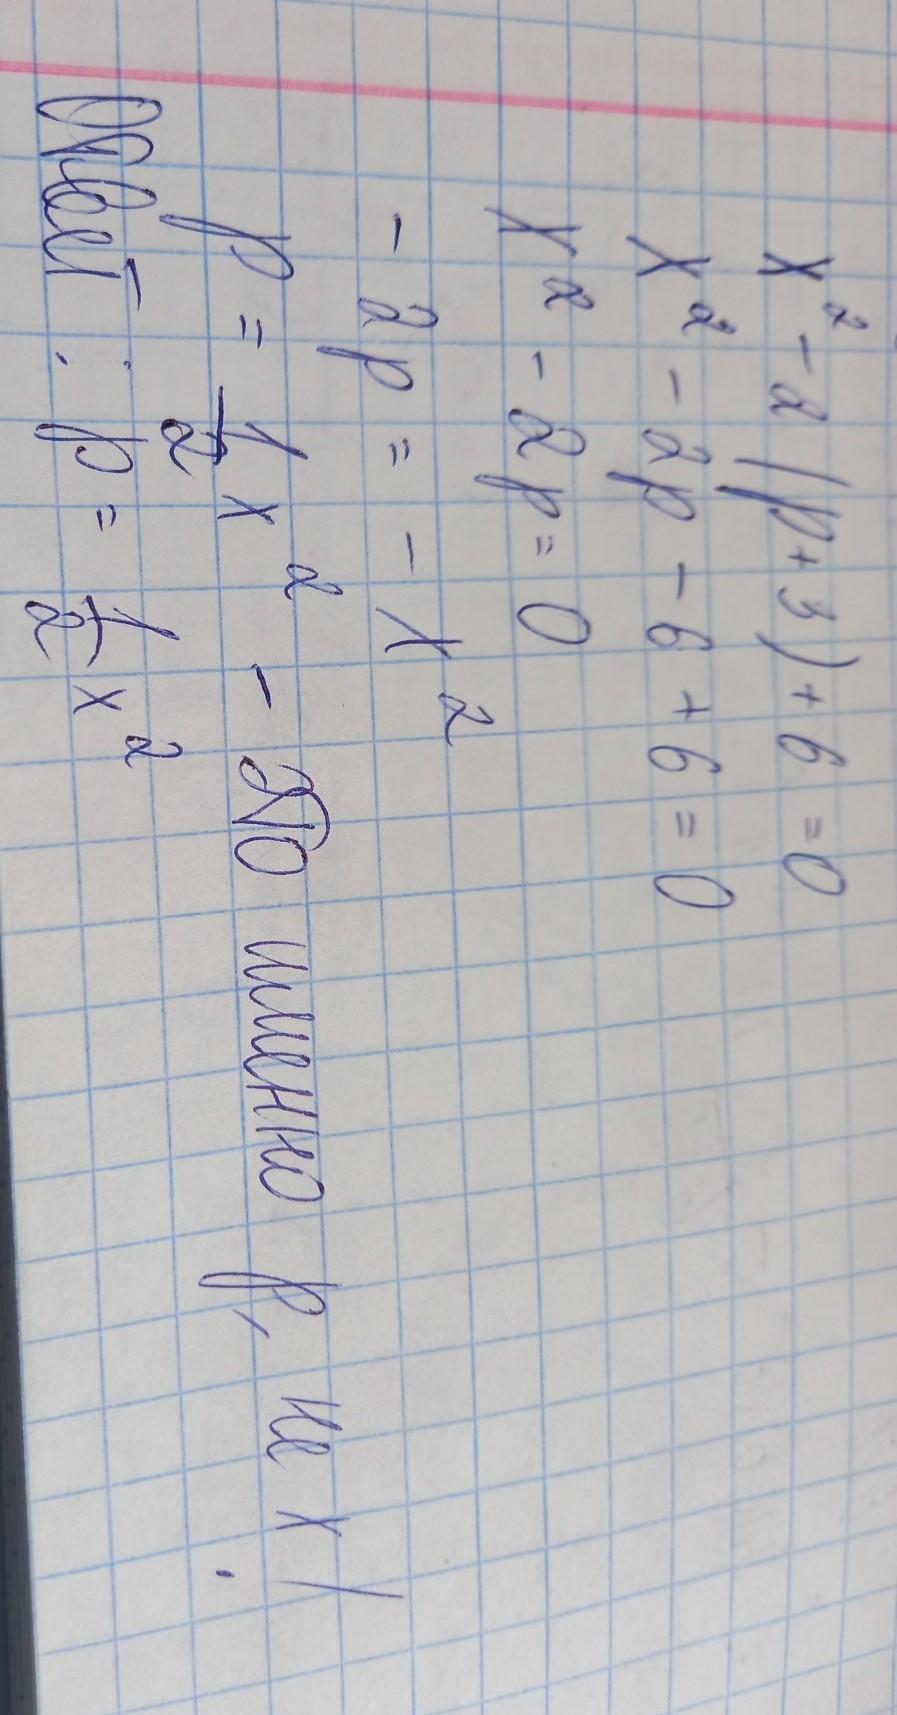 x² - 2(p+3)+6=0
x² - 2p - 6 + 6 = 0
x² - 2p = 0
- 2p = - x²
p = 1/2 x² - это именно p, не x!
Ответ: p = 1/2 x²